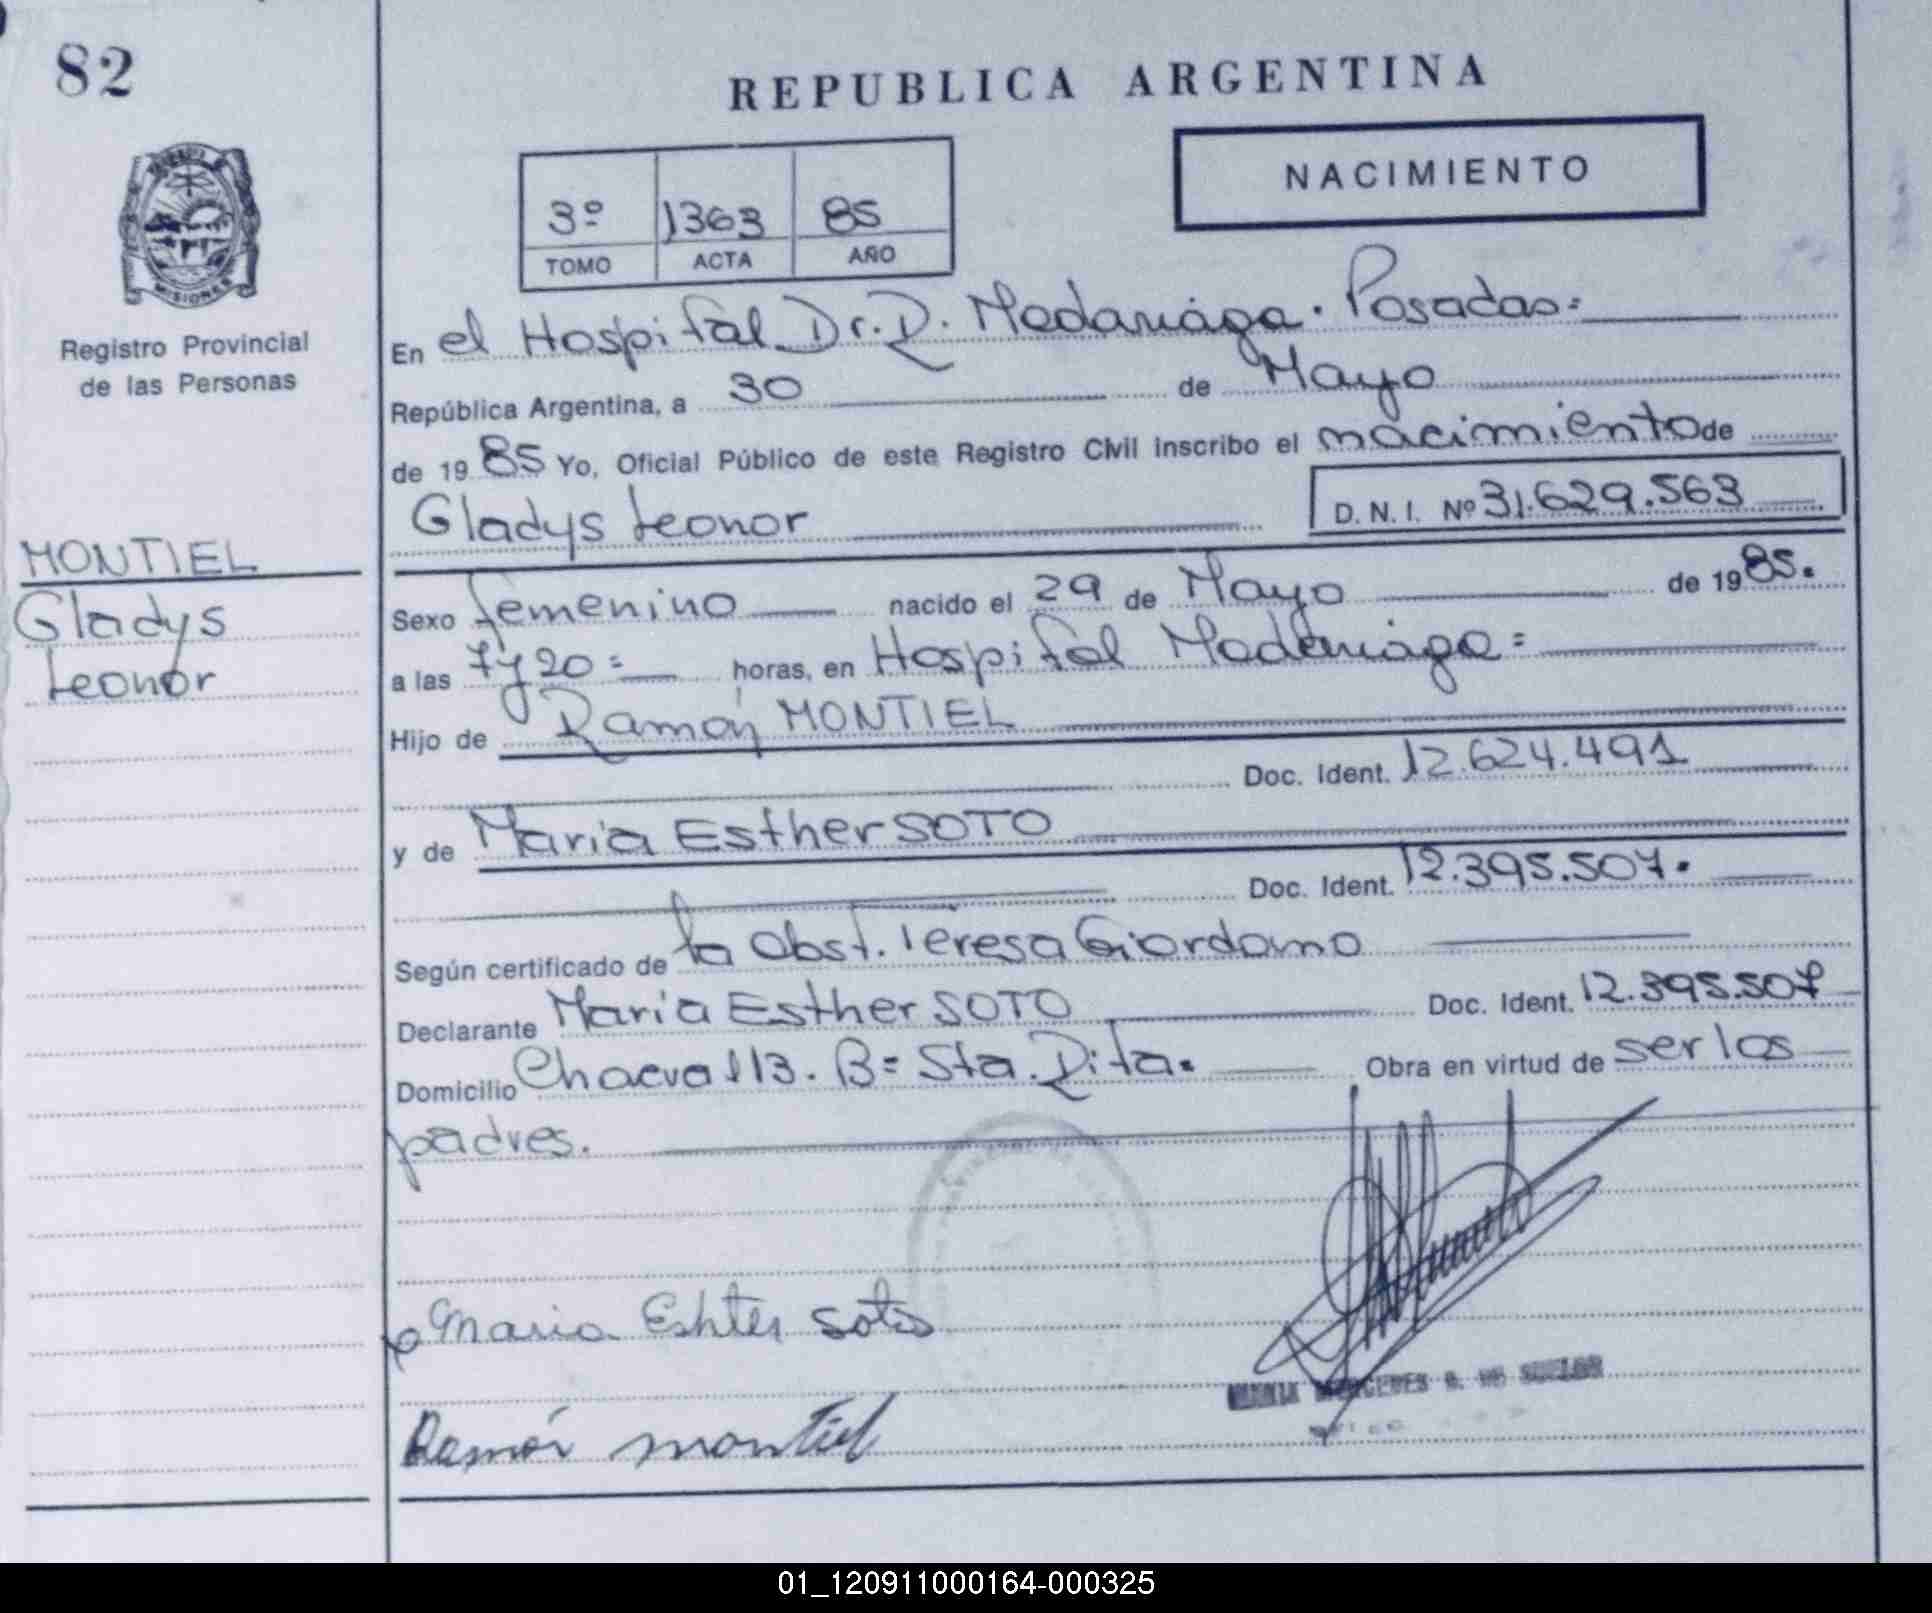 82
REPUBLICA ARGENTINA
NACIMIENTO
3º 1363 85
TOMO ACTA AÑO
MISIONES
Registro Provincial
de las Personas
MONTIEL
Gladys
Leonor
En el Hospital Dr. R. Madariaga. Posadas=
República Argentina, a 30 de Mayo
de 19 85 Yo, Oficial Público de este Registro Civil inscribo el nacimiento de
Gladys Leonor D. N. I. Nº 31.629.563
Sexo femenino nacido el 29 de Mayo de 19 85.
a las 7 y 20= horas, en Hospital Madariaga=
Hijo de Ramón MONTIEL
Doc. Ident. 12.624.491
y de Maria Esther SOTO
Doc. Ident. 12.395.507.
Según certificado de la Obst. Teresa Giordano
Declarante Maria Esther SOTO Doc. Ident. 12.395.507
Domicilio 113. B= Sta. Rita. Obra en virtud de ser los
padres.
Maria Eshter Soto
Ramón montiel
01_120911000164-000325